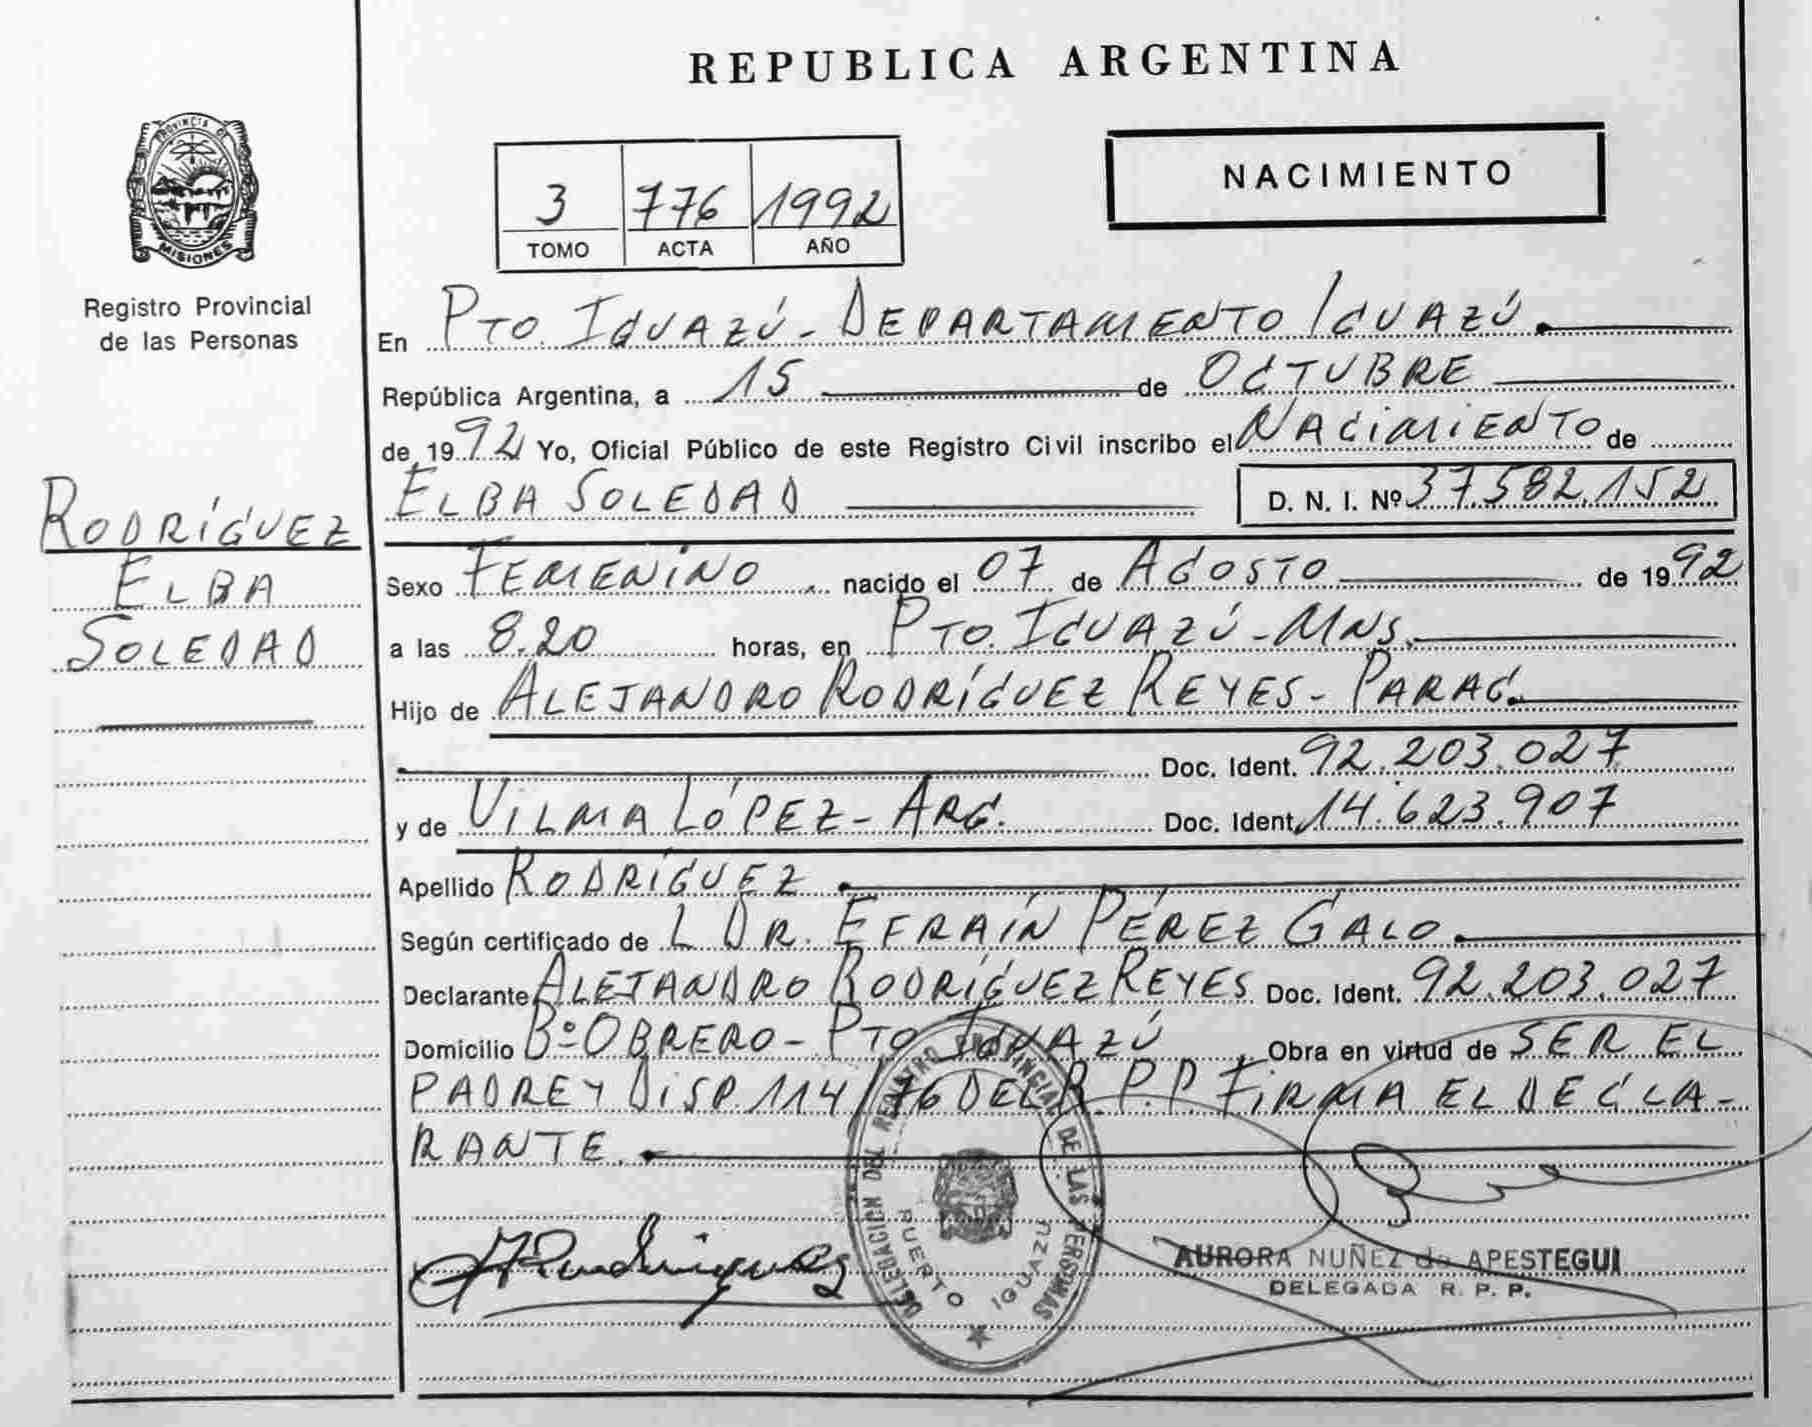 REPUBLICA ARGENTINA
PROVINCIA DE
MISIONES
Registro Provincial
de las Personas
3 776 1992
TOMO ACTA AÑO
NACIMIENTO
En PTO. IGUAZÚ - DEPARTAMENTO IGUAZÚ.
República Argentina, a 15 de OCTUBRE
de 1992 Yo, Oficial Público de este Registro Civil inscribo el NACIMIENTO de
ELBA SOLEDAD D. N. I. Nº 37.582.152
RODRÍGUEZ
ELBA
SOLEDAD
Sexo FEMENINO. nacido el 07 de AGOSTO de 1992
a las 8.20 horas, en PTO. IGUAZÚ - MNS.
Hijo de ALEJANDRO RODRÍGUEZ REYES - PARAG.
Doc. Ident. 92.203.027
y de VILMA LÓPEZ - ARG. Doc. Ident. 14.623.907
Apellido RODRÍGUEZ
Según certificado de L DR. EFRAÍN PÉREZ GALO.
Declarante ALEJANDRO RODRÍGUEZ REYES Doc. Ident. 92.203.027
Domicilio Bº OBRERO - PTO IGUAZÚ. Obra en virtud de SER EL
PADRE Y DISP. 114/76 DEL R.P.P. FIRMA EL DECLA-
RANTE.
DELEGACION DEL REGISTRO PROVINCIAL DE LAS PERSONAS
PUERTO IGUAZU
AURORA NUÑEZ de APESTEGUI
DELEGADA R. P. P.